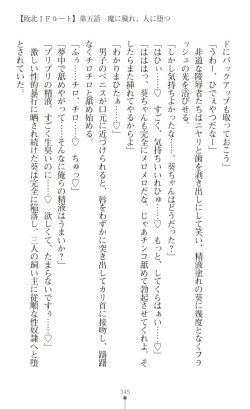 【敗北IFルート】第五話 魔に穢れ、人に堕つ
ドにバックアップも取っておこう」
「うわー、ひでぇやつだなー」
非道な陵辱者たちはニヤリと歯を剥き出しにして笑い、精液塗れの葵に幾度となくフラ
ッシュの光を浴びせる。
「しかし気持ちよかったな……葵ちゃんはどうだった？」
「はひぃ……♡ すごく、気持ちいいれひゅ……♡ もっと、してくらはぁい……♡」
「はははっ。葵ちゃんも完全にメロメロだな。じゃあチンコ舐めて勃起させてくれよ。そ
したらまた挿れてやるからよ」
「わかりまひたぁ……♡」
男子のペニスが口元に近づけられると、唇をわずかに突き出してカリ首に接吻し、躊躇
なくチロチロと舐め始める。
「チロ、チロ……♡ ちゅっ♡」
「夢中で舐めやがって……そんなに俺らの精液はうまいか？」
「プリプリの精液、すごく生臭いのに……♡ 欲しくて、たまらないですぅ……♡」
激しい性的暴行に晒され続けた葵は完全に陥落し、三人の飼い主に従順な性奴隷へと堕
とされていた。
345